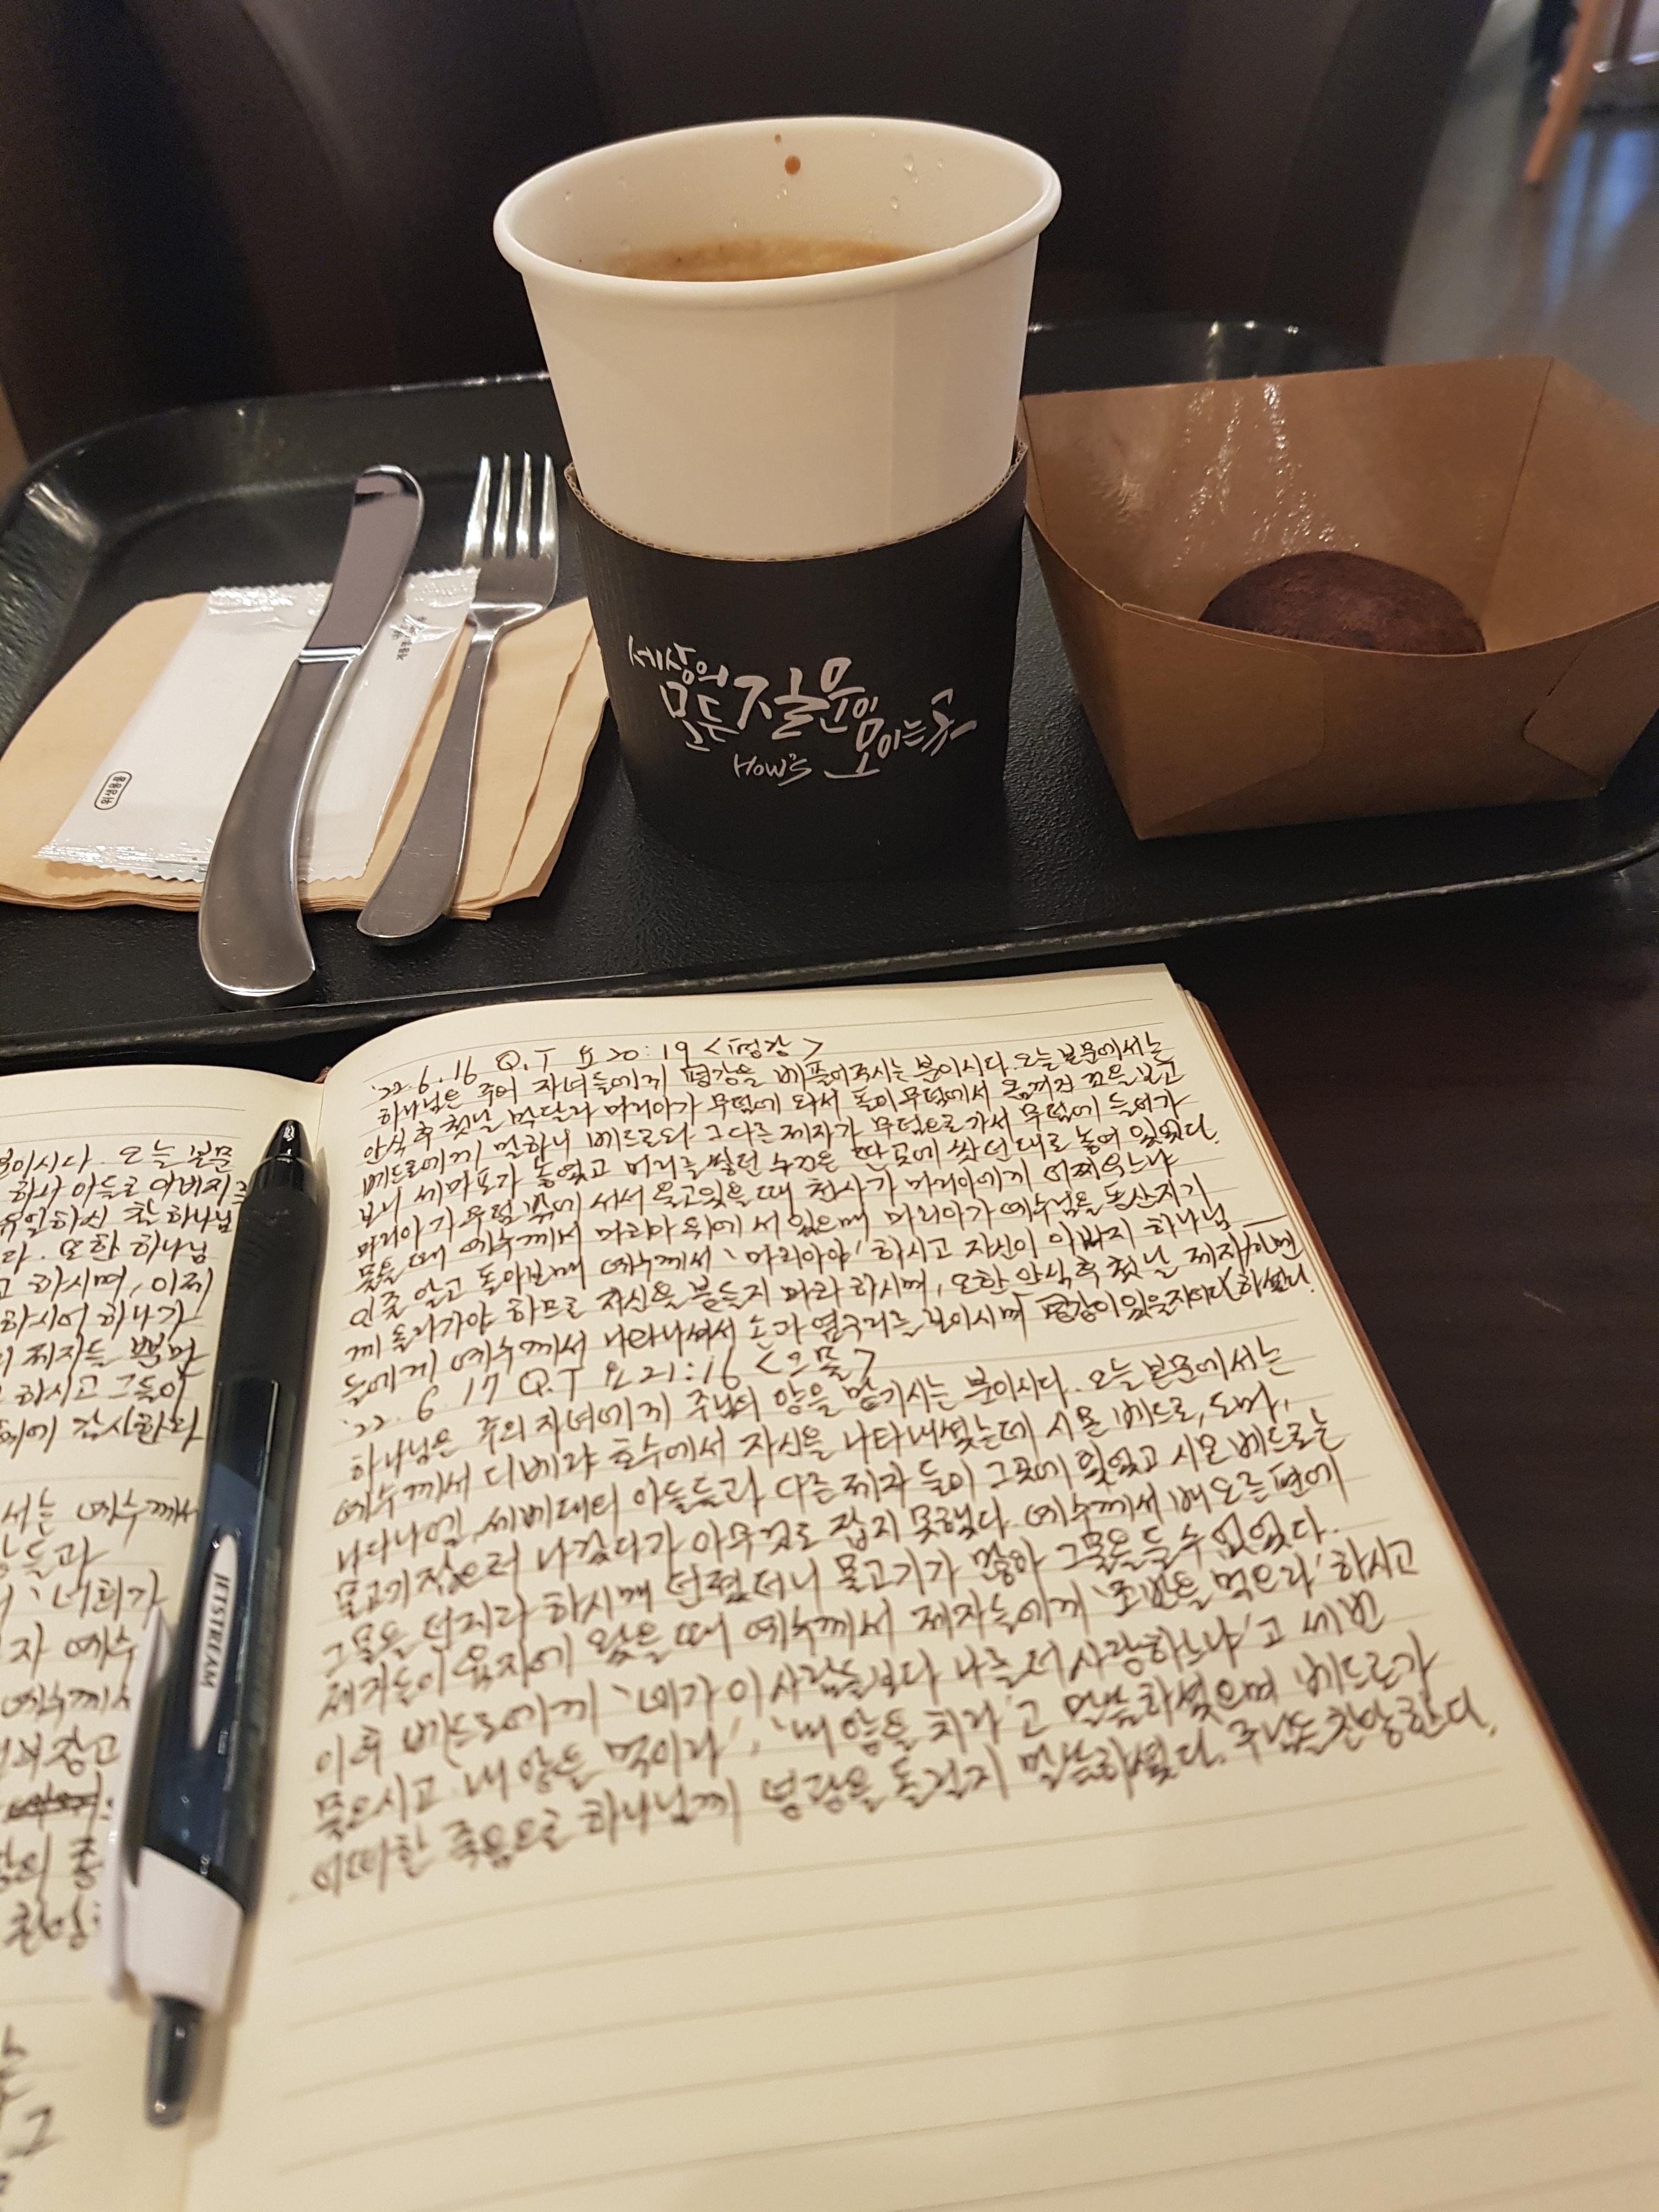 세상의
모든 질문이
모이는 곳
How's
위생용품
JETSTREAM
'22. 6. 16 Q.T 요 20:19 <평강>
하나님은 주의 자녀들에게 평강을 베풀어주시는 분이시다. 오늘 본문에서는
안식 후 첫날 막달라 마리아가 무덤에 와서 돌이 무덤에서 옮겨진 것을 보고
베드로에게 말하니 베드로와 그 다른 제자가 무덤으로 가서 무덤에 들어가
보니 세마포가 놓였고 머리를 쌌던 수건은 딴 곳에 쌌던 대로 놓여 있었다.
마리아가 무덤 밖에 서서 울고있을 때 천사가 마리아에게 어찌 우느냐
물을 때 예수께서 마리아 뒤에 서 있으매 마리아가 예수님을 동산지기
인줄 알고 돌아보매 예수께서 '마리아야' 하시고 자신이 아버지 하나님
께 올라가야 하므로 자신을 붙들지 마라 하시며, 또한 안식 후 첫 날 제자
들에게 예수께서 나타나셔서 손과 옆구리를 보이시며 평강이 있을지어다 하셨다.
'22. 6. 17 Q.T 요 21:16 <으뜸>
하나님은 주의 자녀에게 주님의 양을 맡기시는 분이시다. 오늘 본문에서는
예수께서 디베랴 호수에서 자신을 나타내셨는데 시몬 베드로, 도마,
나다나엘, 세베대의 아들들과 다른 제자들이 그곳에 있었고 시몬 베드로는
물고기 잡으러 나갔다가 아무것도 잡지 못했다. 예수께서 배 오른편에
그물을 던지라 하시매 던졌더니 물고기가 많아 그물을 들 수 없었다.
제자들이 육지에 왔을 때 예수께서 제자들에게 '조반을 먹으라' 하시고
이후 베드로에게 '네가 이 사람들보다 나를 더 사랑하느냐'고 세 번
물으시고 '내 양을 먹이라', '내 양을 치라'고 말씀하셨으며 베드로가
어떠한 죽음으로 하나님께 영광을 돌릴지 말씀하셨다. 주님을 찬양한다.
분이시다. 오늘 본문
하사 아들로 아버지를
유일하신 참 하나님
다. 또한 하나님
고 하시며, 이제
하시어 하나가
제자들 뿐만
하시고 그들이
감사한다
서는 예수께서
들과
'너희가
자 예수
예수께서